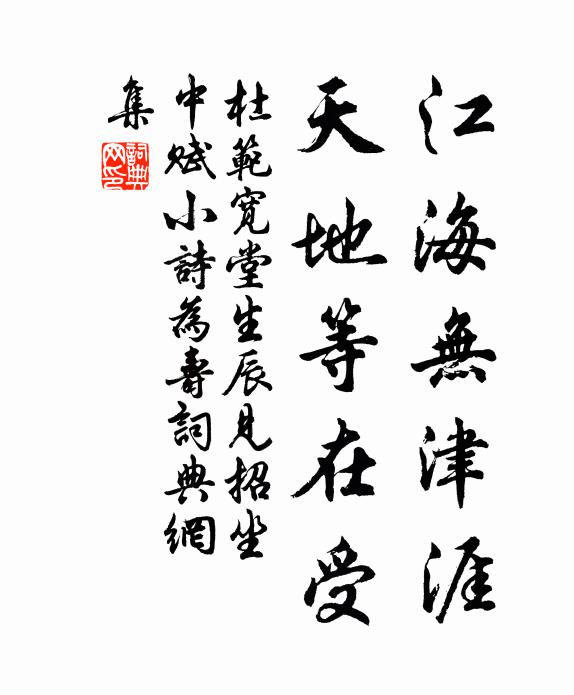 江海無津涯
天地等在受
杜範寬堂生辰見招坐
中賦小詩為壽詞典網
集
詞典網印